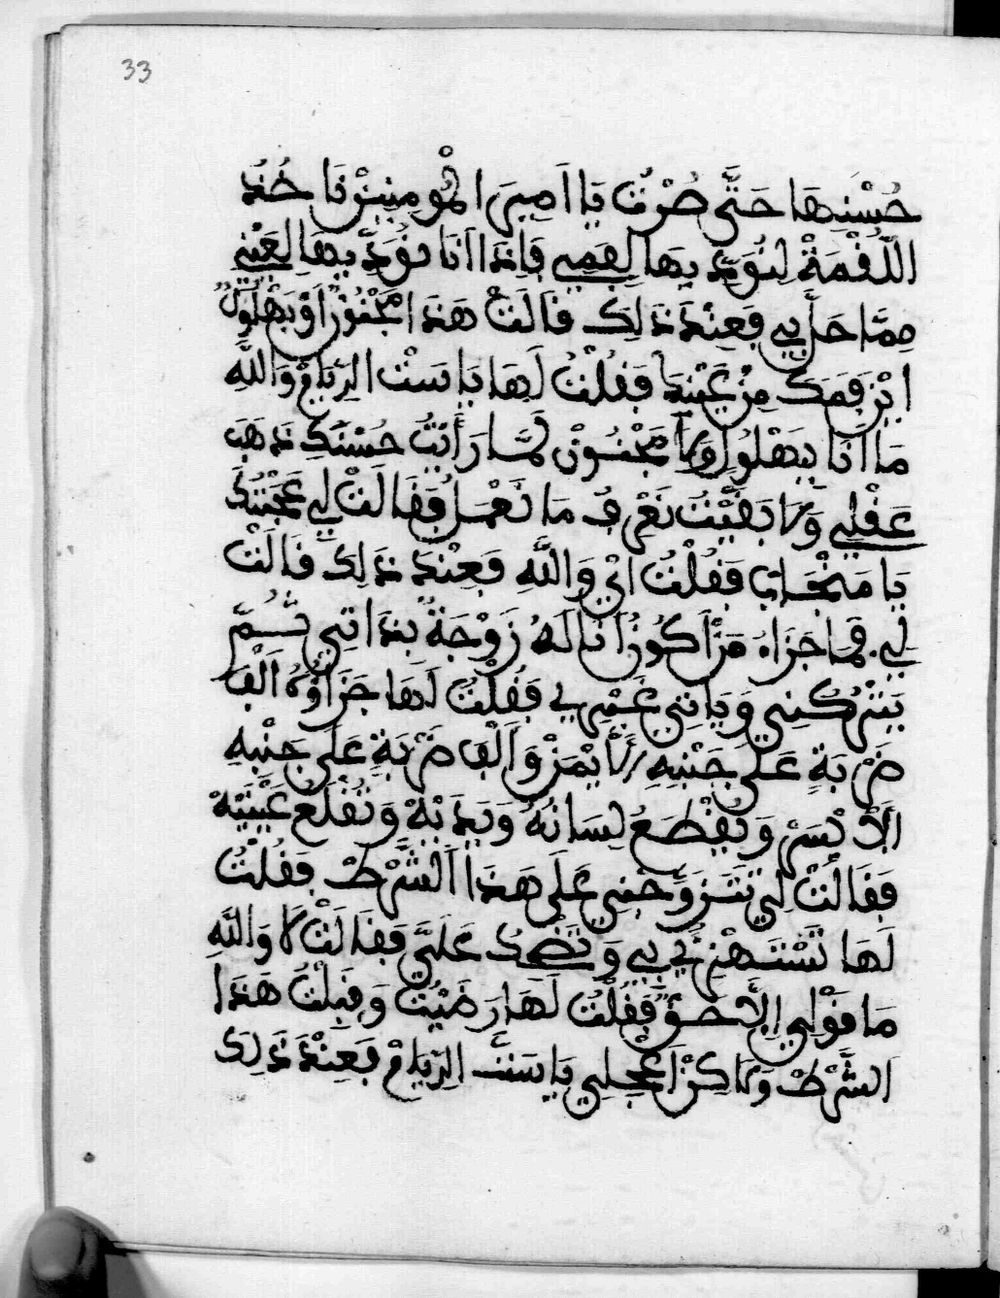 33
حُسْنِهَا حَتَّى صُرْتُ يَا اَمِيرَ الْمُومِنِينْ نَاخُذُ
اللُّقْمَةْ لِنُوَدِّ بِهَا لِفَمِي فَاِذَا اَنَا نُوَدِّ بِهَا لِعَيْنِي
مِمَّا حَلَّ بِي فَعِنْدَ ذَلِكَ قَالَتْ هَذَا مَجْنُونْ اَوْ بَهْلُولْ
اَيْنَ فَمَكَ مِنْ عَيْنِكَ فَقُلْتُ لَهَا يَا سَتْ الرِّيَامْ وَاللَّهِ
مَا اَنَا بِبَهْلُولْ وَلَا مَجْنُونْ لَمَّا رَأَيْتُ حُسْنَكِ ذَهَبَ
عَقْلِي وَلَا بَقَيْتُ نَعْرِفُ مَا نَعْمَلُ فَقَالَتْ لِي عَجَبْتُكَ
يَا مَنْجَابْ فَقُلْتُ اِي وَاللَّهِ فَعِنْدَ ذَلِكَ قَالَتْ
لِي فَمَا جَزَاءُ مَنْ اَكُونُ اَنَا لَهُ زَوْجَةٌ بِذَاتِي ثُمَّ
يَتْرُكْنِي وَيَاتِي غَيْرِي فَقُلْتُ لَهَا جَزَاؤُهُ اَلْفَ
ضَرْبَةٍ عَلَى جَنْبِهِ الْاَيْمَنْ وَاَلْفَ ضَرْبَةٍ عَلَى جَنْبِهِ
اَلْاَيْسَرْ وَيُقْطَعُ لِسَانُهُ وَيَدَيْهْ وَتُقْلَعْ عَيْنَيْهْ
فَقَالَتْ لِي تَتَزَوَّجْنِي عَلَى هَذَا الشَّرْطْ فَقُلْتُ
لَهَا تَسْتَهْزِئِي بِي وَتَضْحَكْ عَلَيَّ فَقَالَتْ لَا وَاللَّهِ
مَا قَوْلِي اِلَّا حَقٌّ فَقُلْتُ لَهَا رَضَيْتُ وَقَبِلْتُ هَذَا
الشَّرْطْ وَلَاكِنْ اَعْجِلِي يَا سَتْ الرِّيَامْ فَعِنْدَ ذَلِكَ